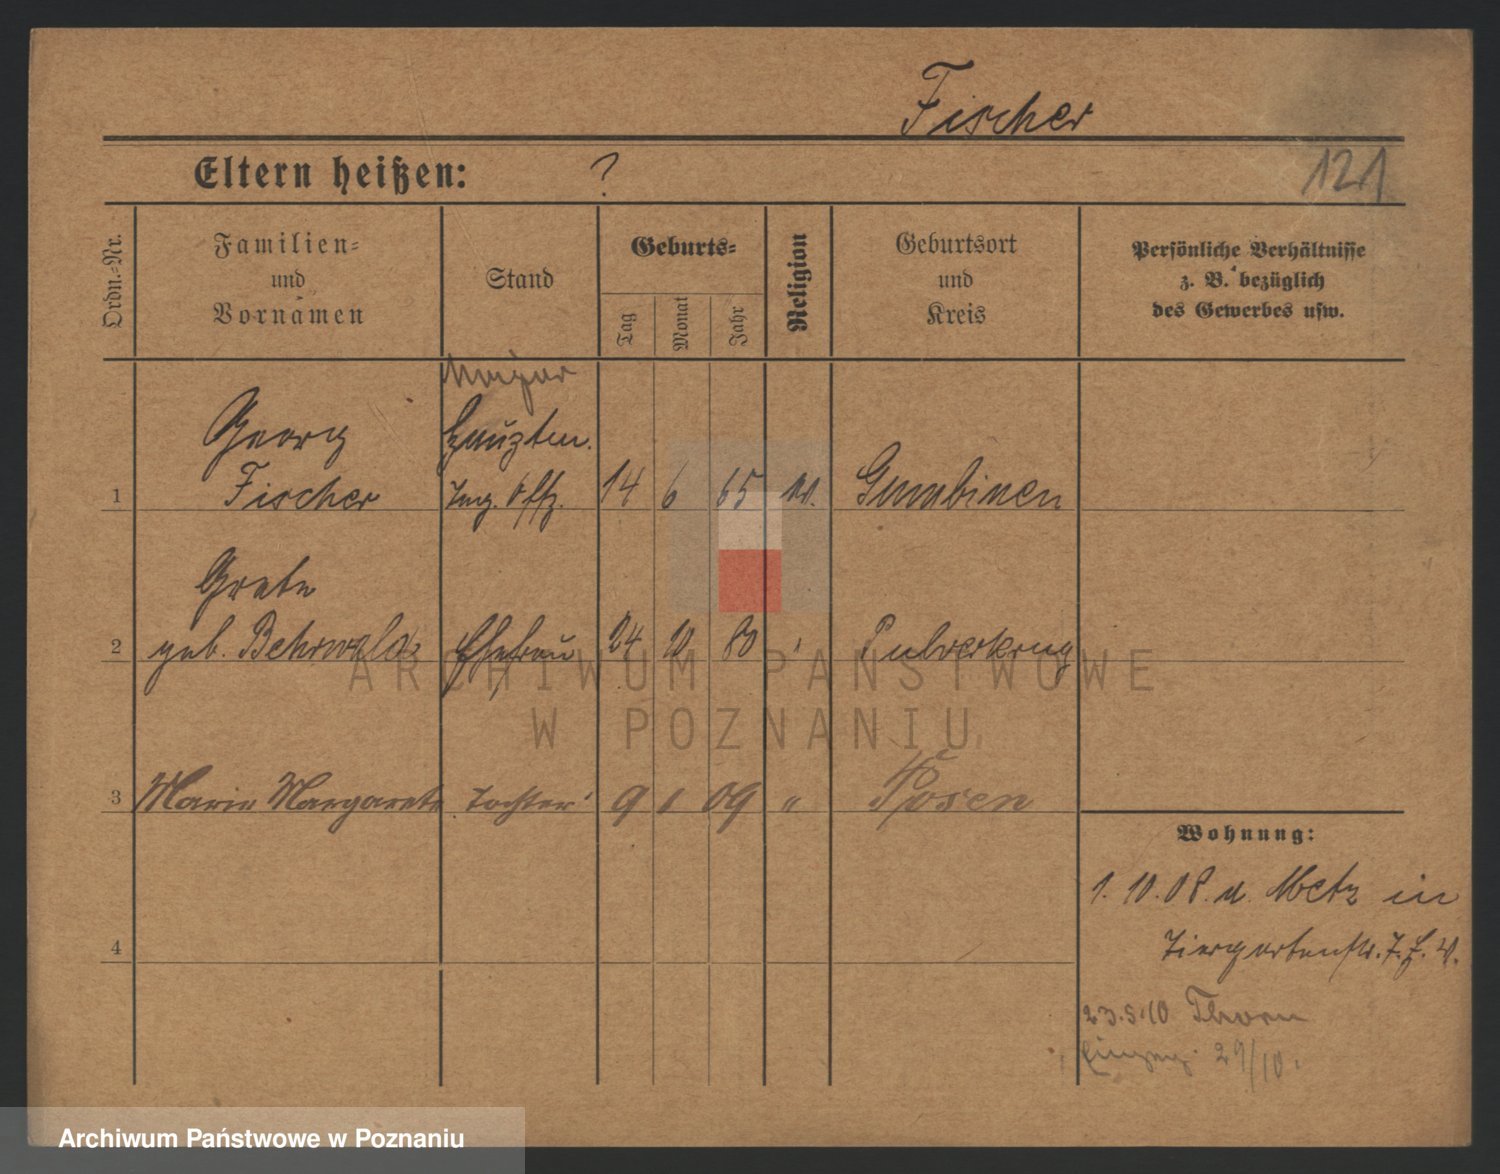 Fischer
Eltern heißen: ?
121
Ordn.-Nr.
Familien-
und
Vornamen
Stand
Geburts-
Tag
Monat
Jahr
Religion
Geburtsort
und
Kreis
Persönliche Verhältnisse
z. B. bezüglich
des Gewerbes usw.
Major
Georg Hauptm.
1 Fischer Ing. Offz. 14 6 65 Gumbinen
Grete
2 geb. Ehefrau 24 10 80 " Pulverkrug
3 Marie Margarete Tochter 9 1 09 " Posen
Wohnung:
1. 10. 08. v. Metz in
Tiergartenstr. 7. z. W.
4
23.5.10 Thorn
29/10.
ARCHIWUM PAŃSTWOWE
W POZNANIU
Archiwum Państwowe w Poznaniu